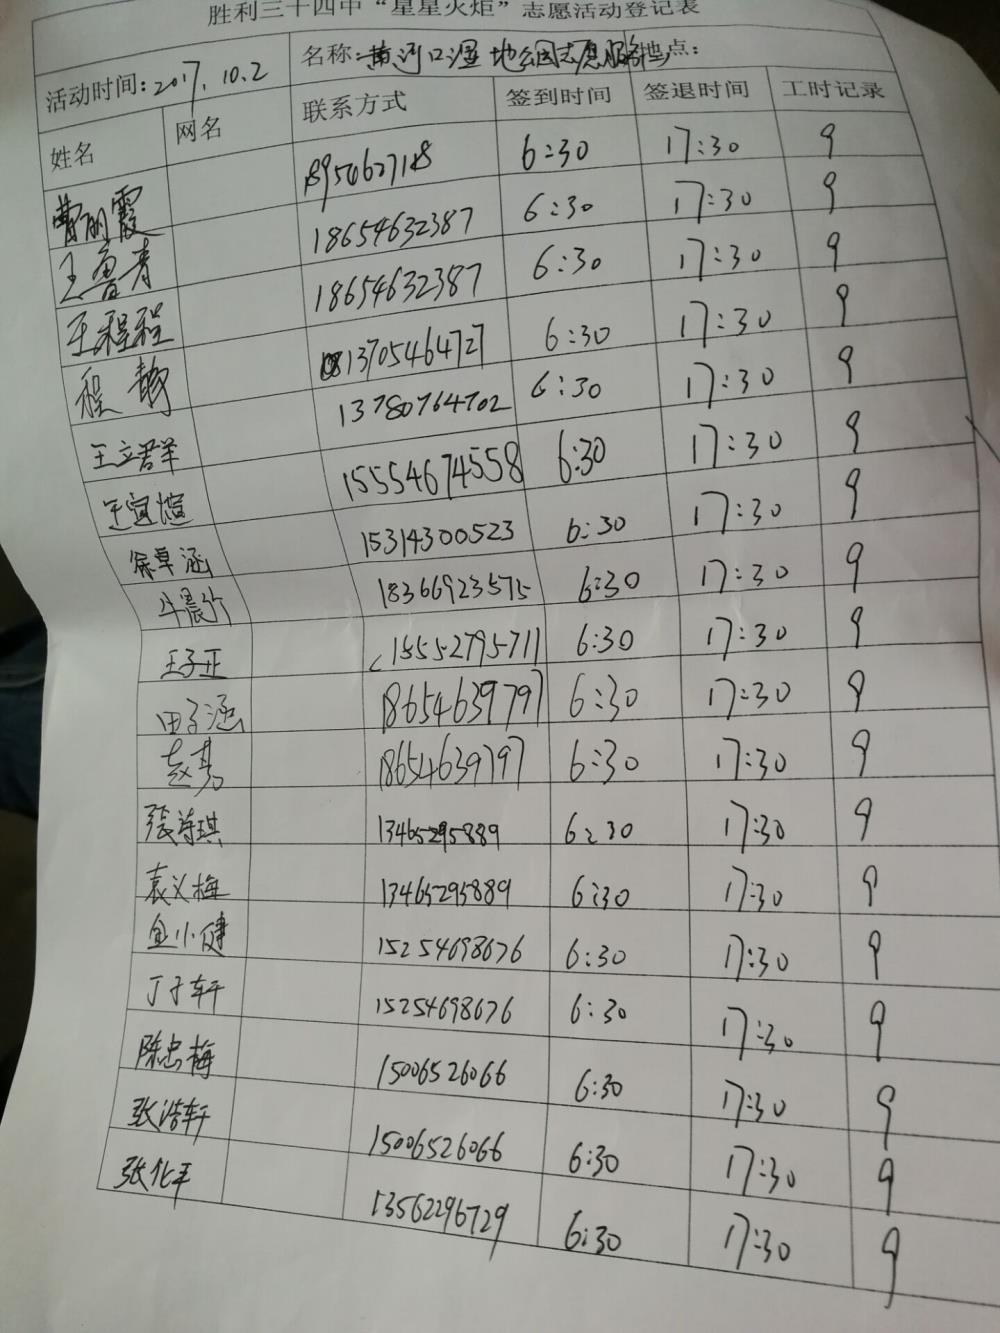 胜利三十四中“星星火炬”志愿活动登记表
活动时间:2017.10.2 名称:黄河口湿地公园志愿服务 地点:
姓名 网名 联系方式 签到时间 签退时间 工时记录
霞 6:30 17:30 9
王鲁青 18654632387 6:30 17:30 9
王程程 18654632387 6:30 17:30 9
程 13705464727 6:30 17:30 9
王立群 13780764702 6:30 17:30 9
王宜煊 15554674558 6:30 17:30 9
徐卓涵 15314300523 6:30 17:30 9
牛晨 18366923575 6:30 17:30 9
王子正 15552795711 6:30 17:30 9
田子涵 18654639797 6:30 17:30 9
赵勇 18654639797 6:30 17:30 9
张诗琪 13465295889 6:30 17:30 9
袁义梅 13465295889 6:30 17:30 9
小健 15254698676 6:30 17:30 9
丁子轩 15254698676 6:30 17:30 9
陈忠梅 15006526066 6:30 17:30 9
张浩轩 15006526066 6:30 17:30 9
张化平 13562296729 6:30 17:30 9